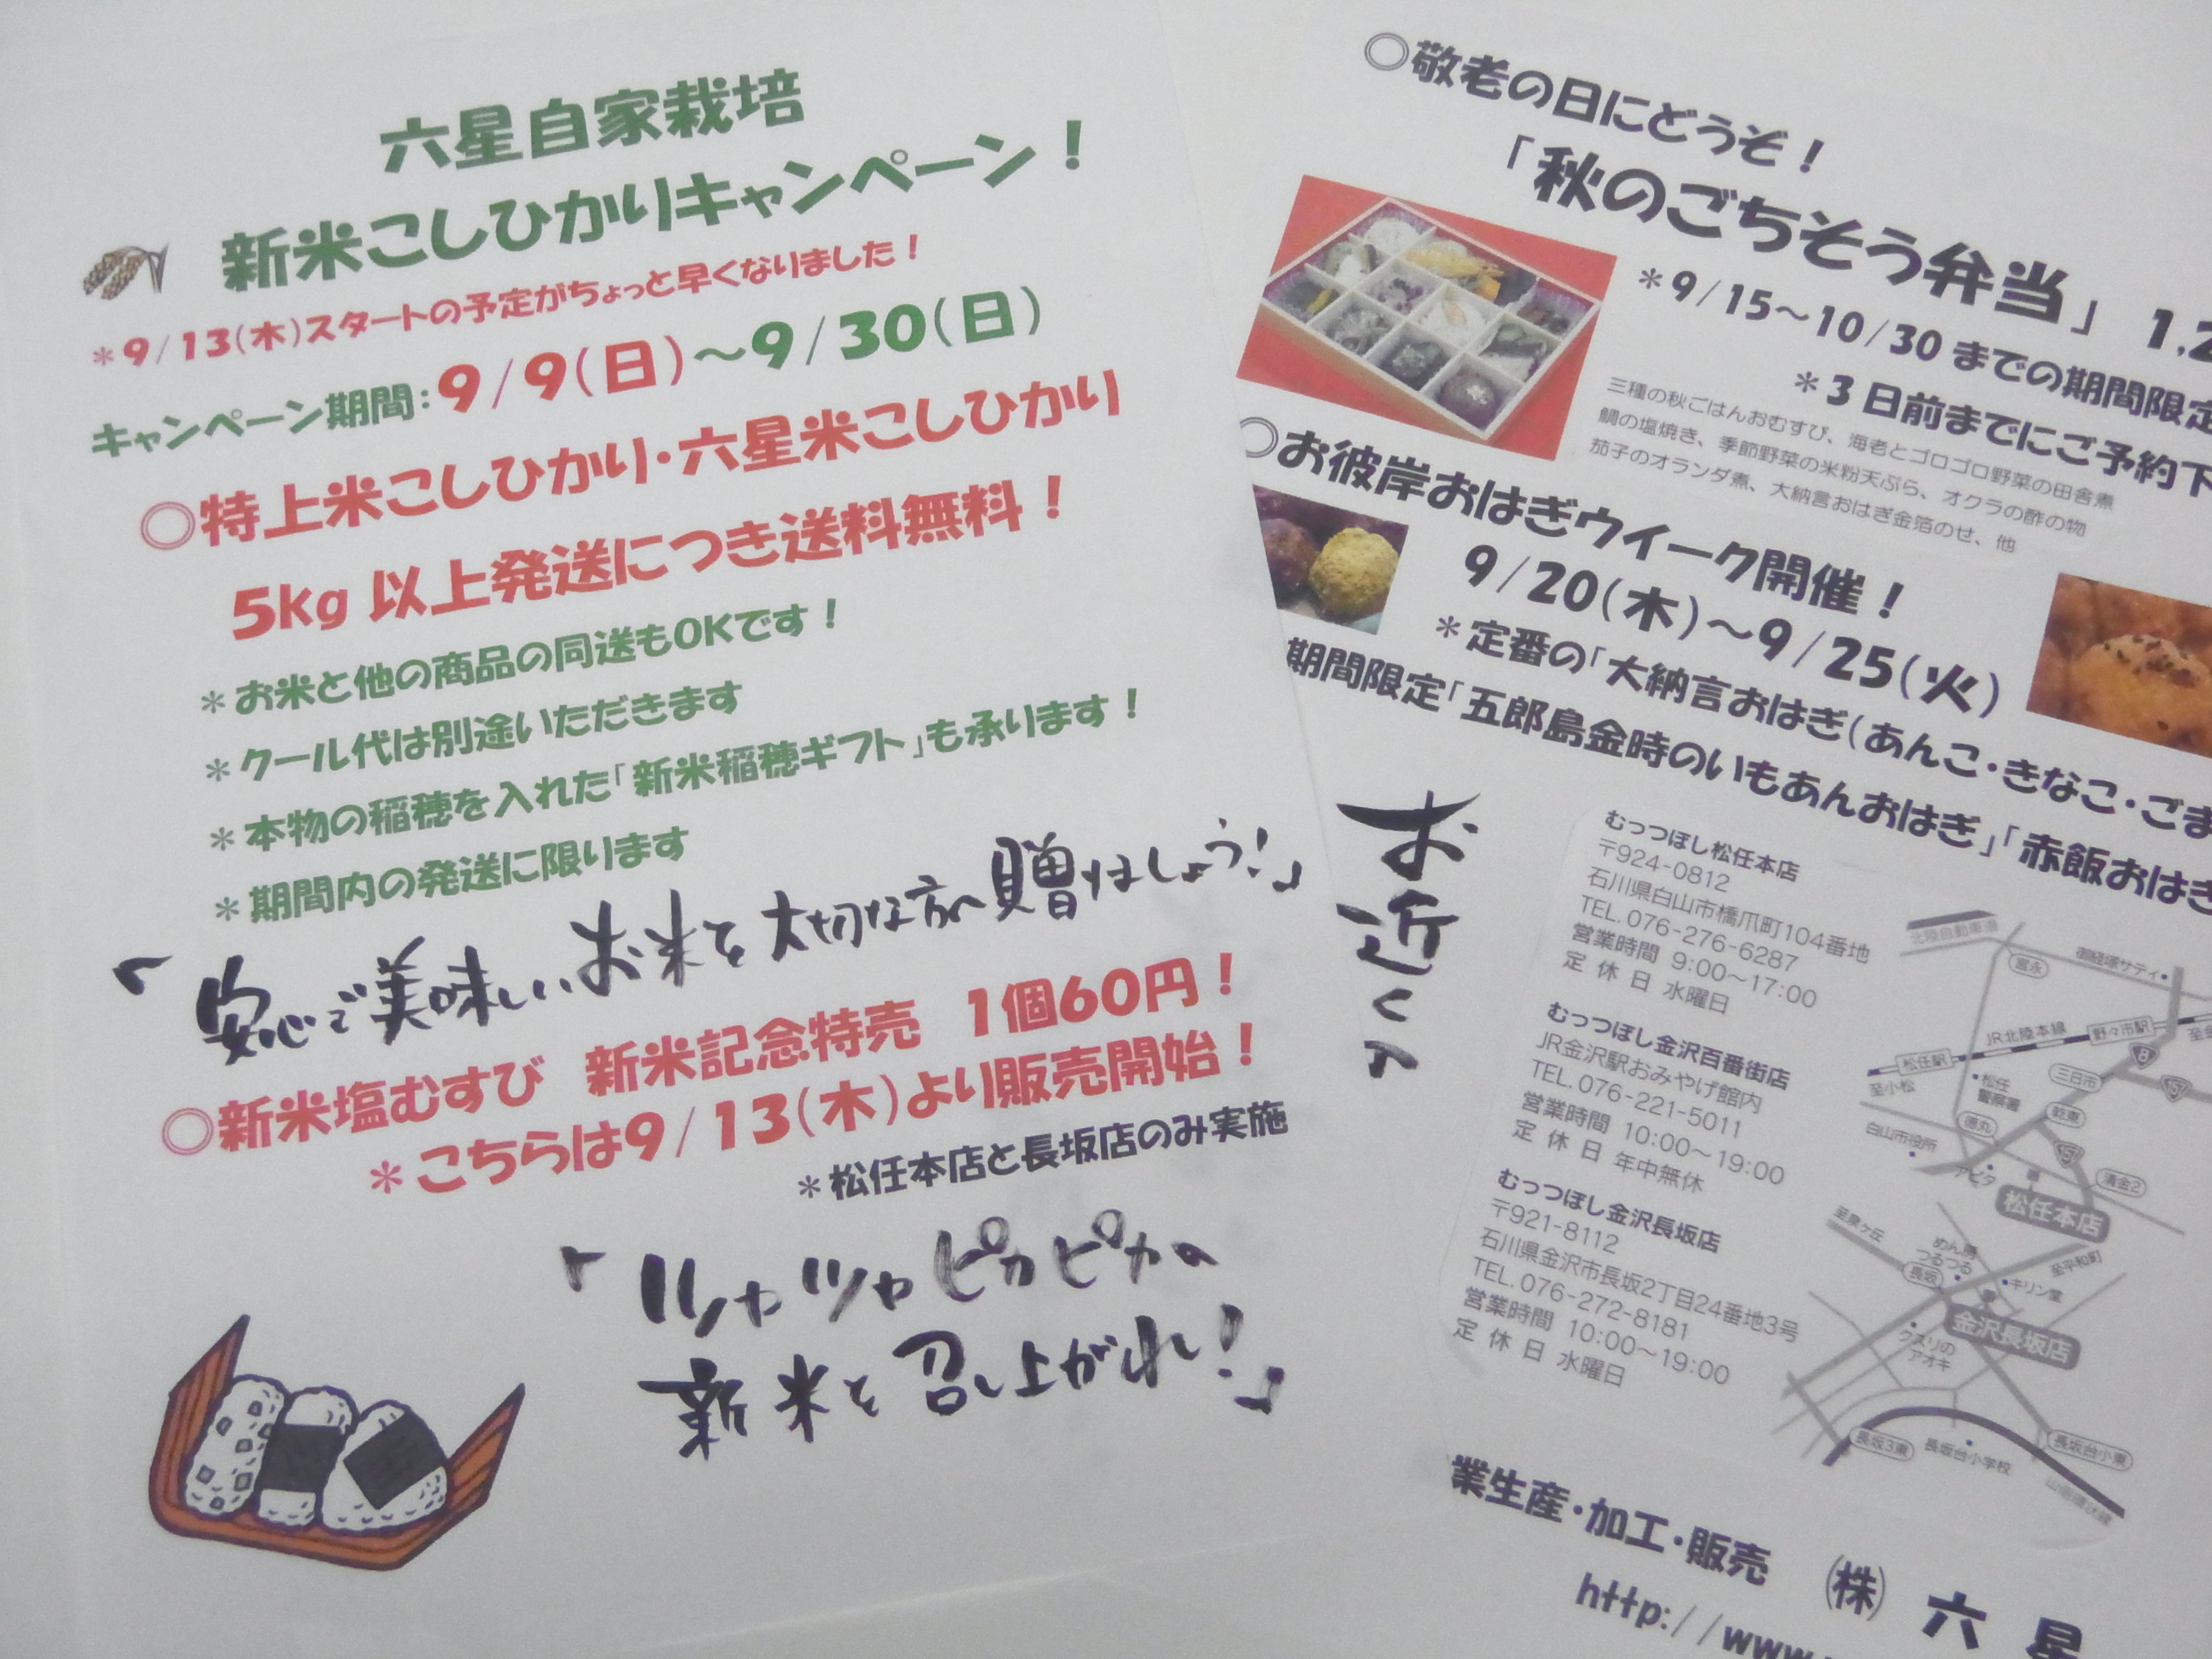 六星自家栽培
新米こしひかりキャンペーン！
＊9/13(木)スタートの予定がちょっと早くなりました！
キャンペーン期間：9/9(日)～9/30(日)
○特上米こしひかり・六星米こしひかり
5kg 以上発送につき送料無料！
＊お米と他の商品の同送もOKです！
＊クール代は別途いただきます
＊本物の稲穂を入れた「新米稲穂ギフト」も承ります！
＊期間内の発送に限ります
「安心で美味しいお米を大切な方へ贈りましょう！」
○新米塩むすび 新米記念特売 1個60円！
＊こちらは9/13(木)より販売開始！
＊松任本店と長坂店のみ実施
「ツヤツヤピカピカの
新米を召し上がれ！」
○敬老の日にどうぞ！
「秋のごちそう弁当」 1,2
＊9/15～10/30 までの期間限定
＊3 日前までにご予約下
三種の秋ごはんおむすび、海老とゴロゴロ野菜の田舎煮
鯛の塩焼き、季節野菜の米粉天ぷら、オクラの酢の物
茄子のオランダ煮、大納言おはぎ金箔のせ、他
○お彼岸おはぎウイーク開催！
9/20(木)～9/25(火)
＊定番の「大納言おはぎ(あんこ・きなこ・ごま
期間限定「五郎島金時のいもあんおはぎ」「赤飯おはぎ
お近くの
むっつぼし松任本店
〒924-0812
石川県白山市橋爪町104番地
TEL. 076-276-6287
営業時間 9:00～17:00
定休日 水曜日
むっつぼし金沢百番街店
JR金沢駅おみやげ館内
TEL. 076-221-5011
営業時間 10:00～19:00
定休日 年中無休
むっつぼし金沢長坂店
〒921-8112
石川県金沢市長坂2丁目24番地3号
TEL. 076-272-8181
営業時間 10:00～19:00
定休日 水曜日
北陸自動車道
宮永
御経塚サティ
JR北陸本線
野々市駅
至金
松任駅
至小松
8
松任
警察署
三日市
157
乾東
徳丸
白山市役所
157
アピタ
清金2
松任本店
至泉ヶ丘
めん房
つるつる
至平和町
長坂
キリン堂
金沢長坂店
クスリの
アオキ
長坂3東
長坂台小学校
長坂台小東
山側環状線
業生産・加工・販売 ㈱ 六星
http://www.